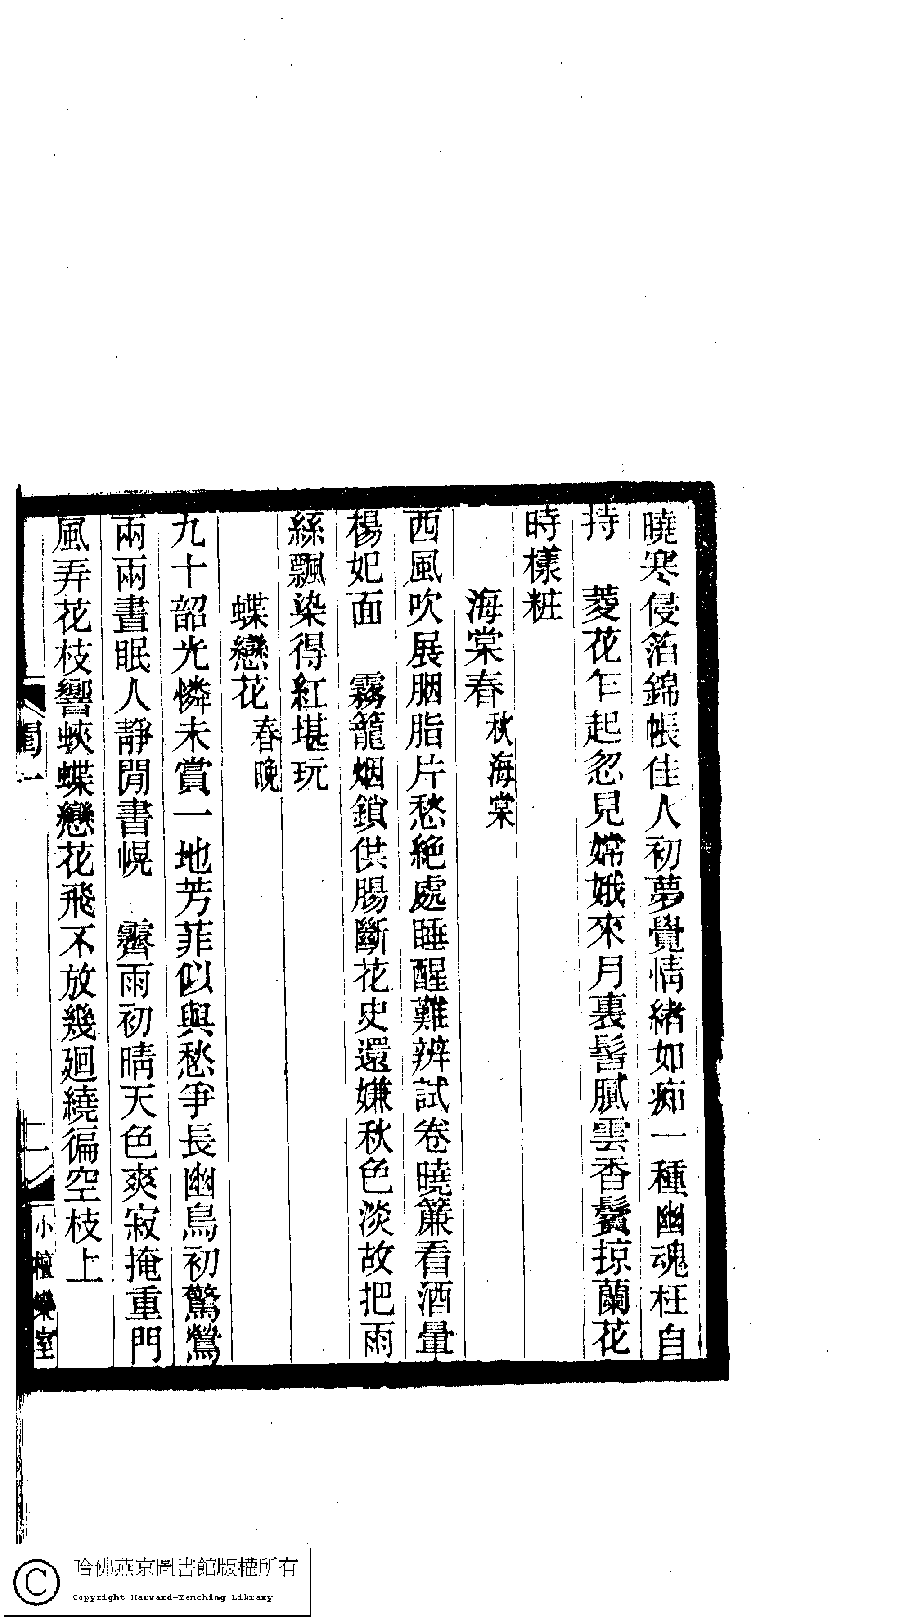 曉寒侵箔錦帳佳人初夢覺情緒如痴一種幽魂枉自
持　菱花乍起忽見嫦娥來月裏髻膩雲香鬢掠蘭花
時樣粧
海棠春秋海棠
西風吹展胭脂片愁絶處睡醒難辨試卷曉簾看酒暈
楊妃面　霧籠烟鎖供腸斷花史還嫌秋色淡故把雨
絲飄染得紅堪玩
蝶戀花春晚
九十韶光憐未賞一地芳菲似與愁爭長幽鳥初驚鶯
兩兩晝眠人靜閒書幌　霽雨初晴天色爽寂掩重門
風弄花枝響蛺蝶戀花飛不放幾廻繞徧空枝上
閨一
二
小檀欒室
哈佛燕京圖書館版權所有
Copyright Harvard-Yenching Library